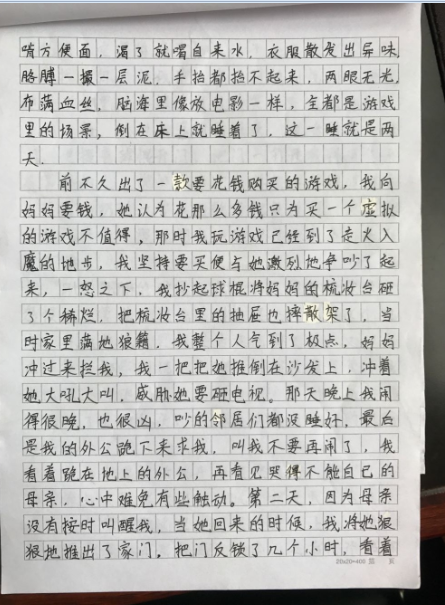 啃方便面，渴了就喝自来水，衣服散发出异味，
胳膊一撮一层泥，手抬都抬不起来，两眼无光，
布满血丝，脑海里像放电影一样，全都是游戏
里的场景，倒在床上就睡着了，这一睡就是两
天．
前不久出了一款要花钱购买的游戏，我向
妈妈要钱，她认为花那么多钱只为买一个虚拟
的游戏不值得，那时我玩游戏已经到了走火入
魔的地步，我坚持要买便与她激烈地争吵了起
来，一怒之下，我抄起球棍将妈妈的梳妆台砸
了个稀烂，把梳妆台里的抽屉也摔散架了，当
时家里满地狼籍，我整个人气到了极点，妈妈
冲过来拦我，我一把把她推倒在沙发上，冲着
她大吼大叫，威胁她要砸电视。那天晚上我闹
得很晚，也很凶，吵的邻居们都没睡好，最后
是我的外公跪下来求我，叫我不要再闹了，我
看着跪在地上的外公，再看见哭得不能自已的
母亲，心中难免有些触动。第二天，因为母亲
没有按时叫醒我，当她回来的时候，我将她狠
狠地推出了家门。把门反锁了几个小时，看着
20×20=400 第 页